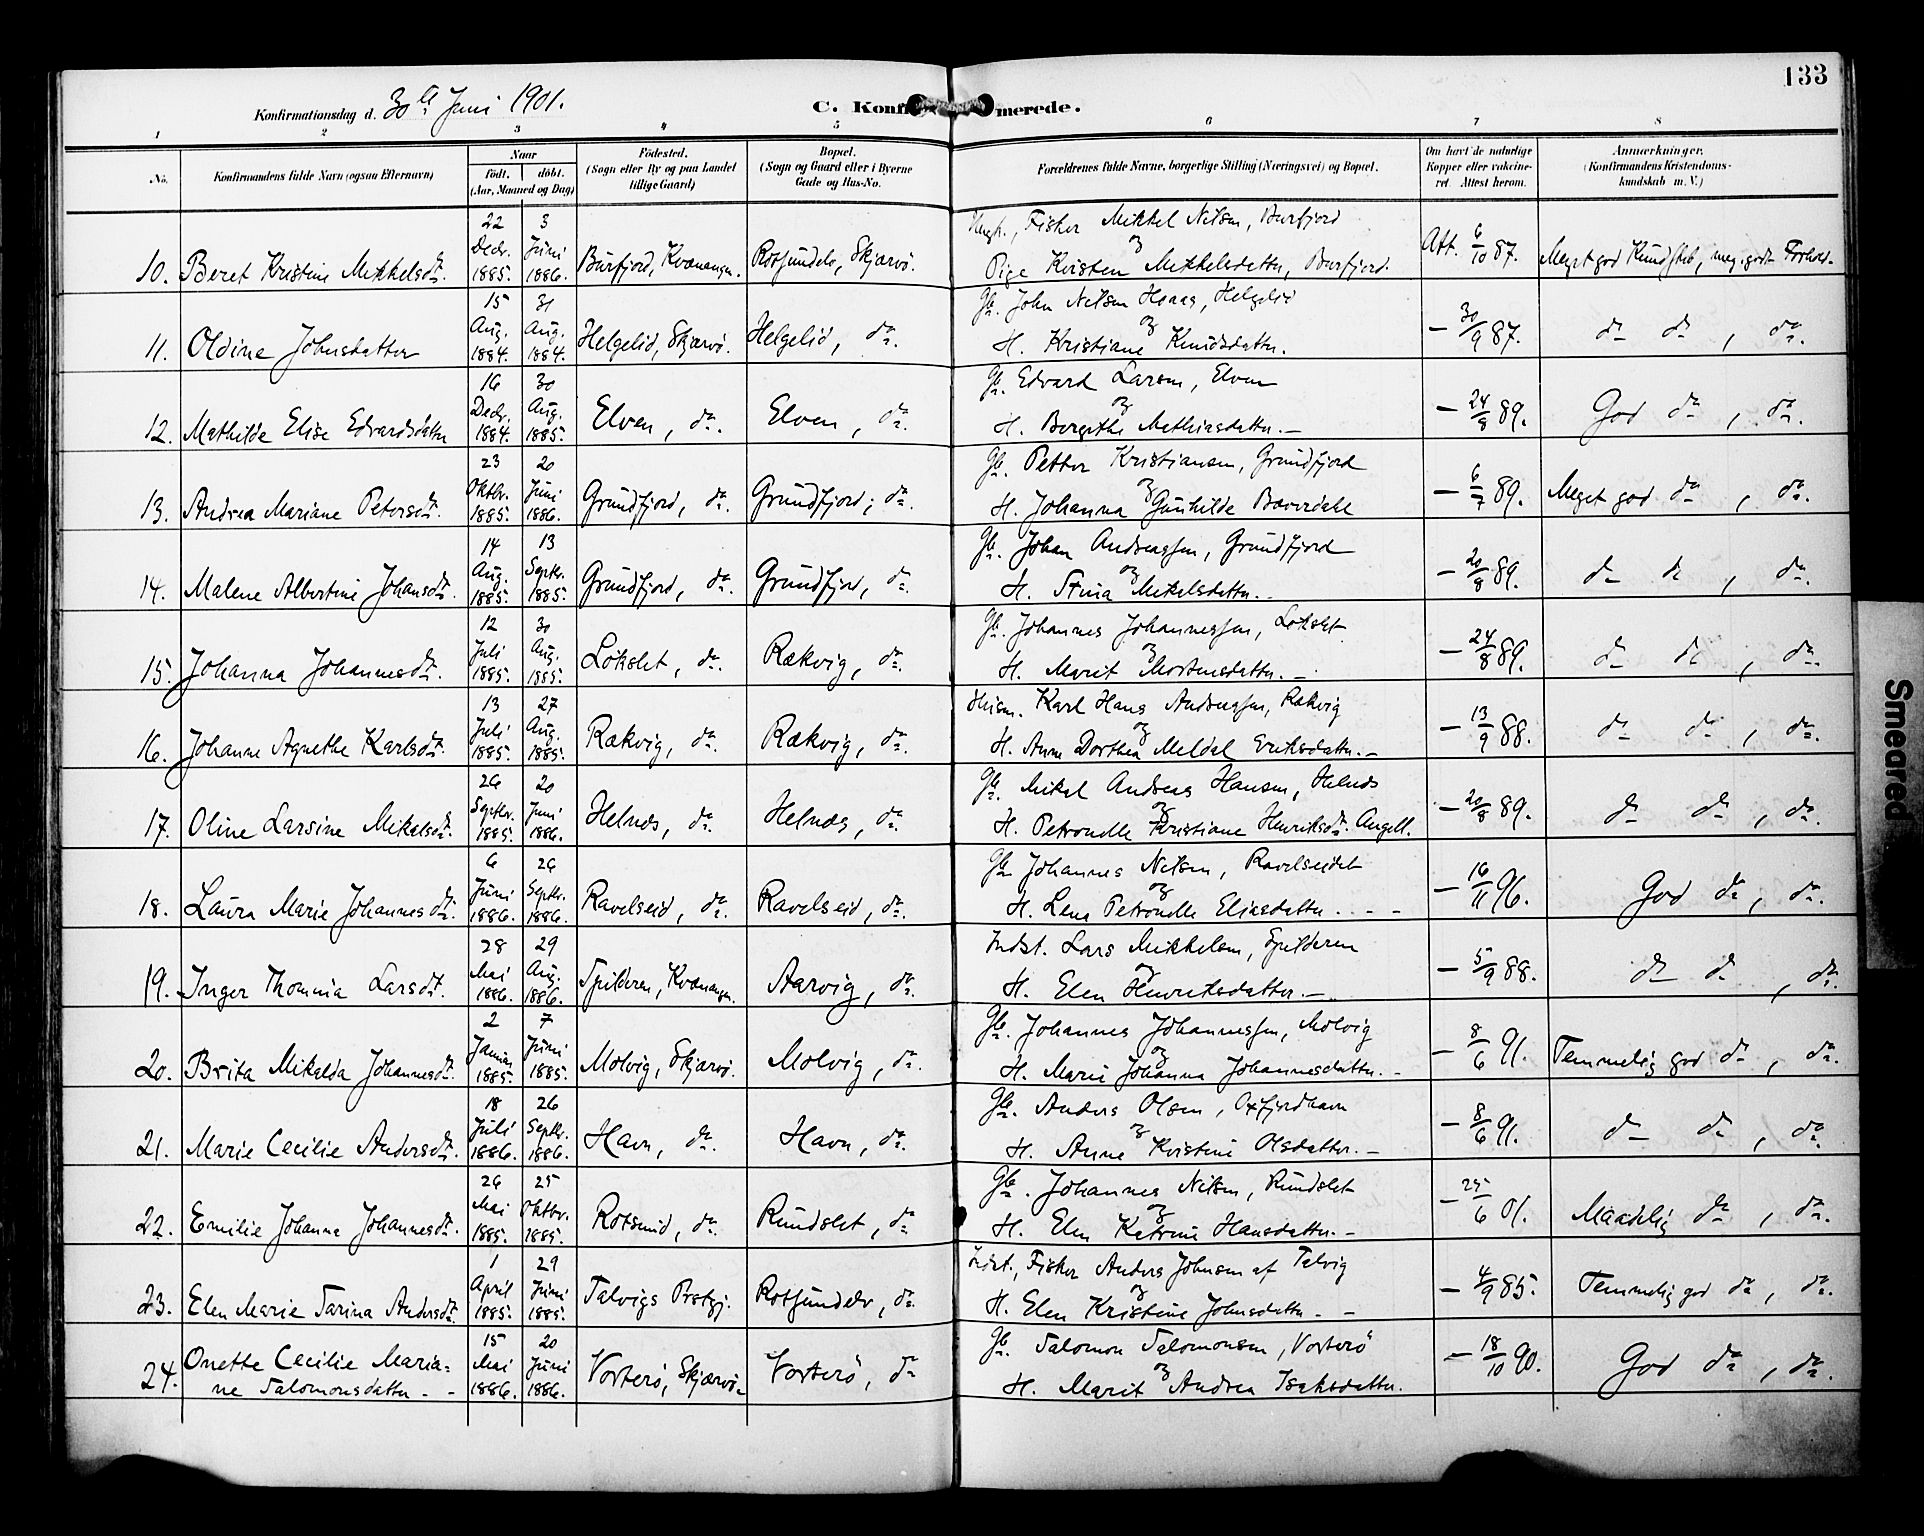 133
Konfirmationsdag d. 30te Juni 1901.
C. Konfirmerede.
1 2 3 4 5 6 7 8
No. Konfirmandens fulde Navn (ogsaa Efternavn) Naar født. døbt. (Aar, Maaned og Dag) Fødested. (Sogn eller By og paa Landet tillige Gaard) Bopæl. (Sogn og Gaard eller i Byerne Gade og Hus-No. Forældrenes fulde Navne, borgerlige Stilling (Næringsvei) og Bopæl. Om havt de naturlige Kopper eller vakcineret. Attest herom. Anmærkninger, (Konfirmandens Kristendomskundskab m. V.)
10. Beret Kristine Mikkelsdt. 22 Decbr. 1885. 3 Juni 1886. Burfjord, Kvænangen. Rotsundelv, Skjærvö. Ungk., Fisker Mikkel Nilsen, Burfjord
og
Pige Kristen Mikkelsdatter, Burfjord. Att. 6/10 87. Meget god Kundskab, meg. godt Forhold.
11. Oldine Johnsdatter 15 Aug. 1884. 31 Aug. 1884. Helgelid, Skjærvö. Helgelid, do. Gb. John Nilsen Haaes, Helgelid
og
H. Kristiane Knudsdatter. - 30/9 87. do do, do.
12. Mathilde Elise Edvardsdatter 16 Decbr. 1884. 30 Aug. 1885. Elven, do. Elven, do. Gb. Edvard Larsen, Elven
og
H. Bergithe Mathiasdatter. - - 24/8 89. God do, do.
13. Andrea Mariane Petersdt. 23 Oktbr. 1885. 20 Juni 1886. Grundfjord, do. Grundfjord, do. Gb. Petter Kristiansen, Grundfjord
og
H. Johanna Gunhilde Baverdahl - 6/7 89. Meget god do, do.
14. Malene Albertine Johansdt. 14 Aug. 1885. 13 Septbr. 1885. Grundfjord, do. Grundfjord, do. Gb. Johan Andreassen, Grundfjord
og
H. Stina Mikelsdatter. - - 20/8 89. do do, do.
15. Johanna Johannesdt. 12 Juli 1885. 30 Aug. 1885. Lökslet, do. Rækvig, do. Gb. Johannes Johannessen, Lökslet
og
H. Marit Mortensdatter. - - 24/8 89. do do, do.
16. Johanne Agnethe Karlsdt. 13 Juli 1885. 27 Aug. 1885. Rækvig, do. Rækvig, do. Husm. Karl Hans Andreassen, Rækvig
og
H. Anne Dorthea Meldal Eriksdatter. - - 13/9 88. do do, do.
17. Oline Larsine Mikalsdt. 26 Septbr. 1885. 20 Juni 1886. Helnæs, do. Helnæs, do. Gb. Mikal Andreas Hansen, Helnæs
og
H. Petronelle Kristiane Henriksdt. Angell. - 20/8 89. do do, do.
18. Laura Marie Johannesdt. 6 Juni 1886. 26 Septbr. 1886. Ravelseid, do. Ravelseid, do. Gb. Johannes Nilsen, Ravelseidet
og
H. Lena Petronelle Eliasdatter. - - - - 16/11 96. God do, do.
19. Inger Thomina Larsdt. 28 Mai 1886. 29 Aug. 1886. Spilderen, Kvænangen. Aarvig, do. Indst. Lars Mikkelsen, Spilderen
og
H. Elen Henriksdatter. - - 5/9 88. do do, do.
20. Brita Mikalda Johannesdt. 2 Januar 1885. 7 Juni 1885. Molvig, Skjærvö. Molvig, do. Gb. Johannes Johannessen, Molvig
og
H. Marie Johanna Johannesdatter. - - 8/6 91. Temmelig god do, do.
21. Marie Cecilie Andersdt. 18 Juli 1886. 26 Septbr. 1886. Havn, do. Havn, do. Gb. Anders Olsen, Oxfjordhavn
og
H. Anne Kristine Olsdatter. - - 8/6 91. do do, do.
22. Emilie Johanna Johannesdt. 26 Mai 1885. 25 Oktbr. 1885. Rotsund, do. Rundslet, do. Gb. Johannes Nilsen, Rundslet
og
H. Elen Katrine Hansdatter. - - 25/6 01. Maadelig do, do.
23. Elen Marie Tarina Andersdt. 1 April 1885. 29 Juni 1885. Talvigs Prstgj. Rotsundelv, do. Indst., Fisker Anders Johnsen af Talvig
og
H. Elen Kristine Johnsdatter - - - 4/9 85. Temmelig god do, do.
24. Onette Cecilie Maria=
ne Salomonsdatter - - 15 Mai 1886. 20 Juni 1886. Vorterö, Skjærvö. Vorterö, do Gb. Salomon Salomonsen, Vorterö
og
H. Marit Andrea Isaksdatter. - 18/10 90. God do, do.
Smeared